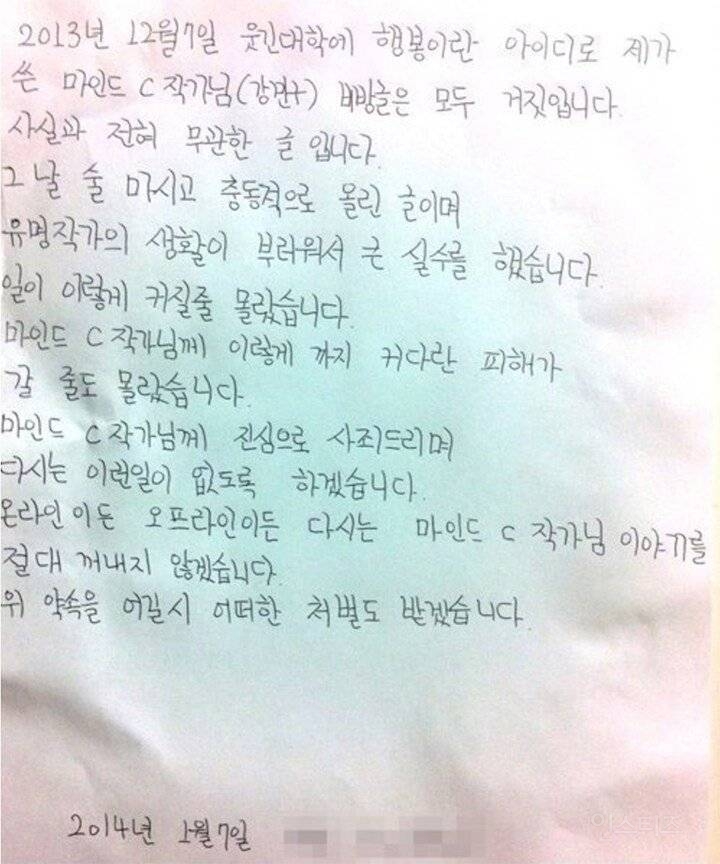 2013년 12월7일 웃긴대학에 행봉이란 아이디로 제가
쓴 마인드 C 작가님(강면+) 비방글은 모두 거짓입니다.
사실과 전혀 무관한 글 입니다.
그 날 술 마시고 충동적으로 올린 글이며
유명작가의 생활이 부러워서 큰 실수를 했습니다.
일이 이렇게 커질줄 몰랐습니다.
마인드 C 작가님께 이렇게 까지 커다란 피해가
갈 줄도 몰랐습니다.
마인드 C 작가님께 진심으로 사죄드리며
다시는 이런일이 없도록 하겠습니다.
온라인이든 오프라인이든 다시는 마인드 C 작가님 이야기를
절대 꺼내지 않겠습니다.
위 약속을 어길시 어떠한 처벌도 받겠습니다.
2014년 1월7일